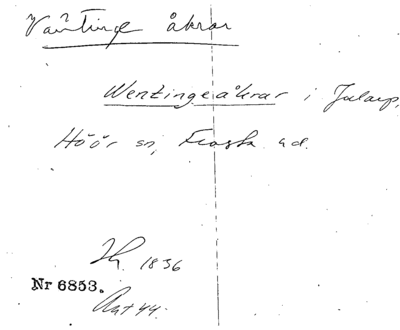 Väntinge åkrar
Wentingeåkrar i Jularp,
Höör sn, Frosta hd.
1836
Nr 6853.
Ant 44.